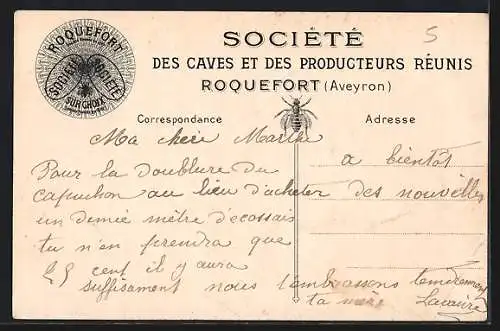 5
ROQUEFORT
SOCIÉTÉ SOCIÉTÉ
SURCHOIX
SOCIÉTÉ
DES CAVES ET DES PRODUCTEURS RÉUNIS
ROQUEFORT (Aveyron)
Correspondance
Adresse
Ma chere Marthe
Pour la doublure du
capuchon au lieu d'acheter
un demie mètre d'ecossais
tu n'en prendra que
25 cent il y aura
suffisament nous t'embrassons tendrement
ta mère
a bientôt
des nouvelles